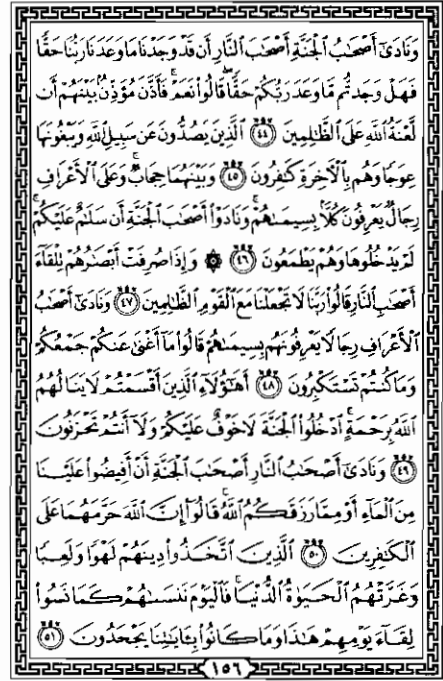 وَنَادَىٰٓ أَصْحَٰبُ ٱلْجَنَّةِ أَصْحَٰبَ ٱلنَّارِ أَن قَدْ وَجَدْنَا مَا وَعَدَنَا رَبُّنَا حَقًّا
فَهَلْ وَجَدتُّم مَّا وَعَدَ رَبُّكُمْ حَقًّا ۖ قَالُوا۟ نَعَمْ ۚ فَأَذَّنَ مُؤَذِّنٌۢ بَيْنَهُمْ أَن
لَّعْنَةُ ٱللَّهِ عَلَى ٱلظَّٰلِمِينَ ﴿٤٤﴾ ٱلَّذِينَ يَصُدُّونَ عَن سَبِيلِ ٱللَّهِ وَيَبْغُونَهَا
عِوَجًا وَهُم بِٱلْءَاخِرَةِ كَٰفِرُونَ ﴿٤٥﴾ وَبَيْنَهُمَا حِجَابٌ ۚ وَعَلَى ٱلْأَعْرَافِ
رِجَالٌ يَعْرِفُونَ كُلًّۢا بِسِيمَىٰهُمْ ۚ وَنَادَوْا۟ أَصْحَٰبَ ٱلْجَنَّةِ أَن سَلَٰمٌ عَلَيْكُمْ ۚ
لَمْ يَدْخُلُوهَا وَهُمْ يَطْمَعُونَ ﴿٤٦﴾ ۞ وَإِذَا صُرِفَتْ أَبْصَٰرُهُمْ تِلْقَآءَ
أَصْحَٰبِ ٱلنَّارِ قَالُوا۟ رَبَّنَا لَا تَجْعَلْنَا مَعَ ٱلْقَوْمِ ٱلظَّٰلِمِينَ ﴿٤٧﴾ وَنَادَىٰٓ أَصْحَٰبُ
ٱلْأَعْرَافِ رِجَالًا يَعْرِفُونَهُم بِسِيمَىٰهُمْ قَالُوا۟ مَآ أَغْنَىٰ عَنكُمْ جَمْعُكُمْ
وَمَا كُنتُمْ تَسْتَكْبِرُونَ ﴿٤٨﴾ أَهَٰٓؤُلَآءِ ٱلَّذِينَ أَقْسَمْتُمْ لَا يَنَالُهُمُ
ٱللَّهُ بِرَحْمَةٍ ۚ ٱدْخُلُوا۟ ٱلْجَنَّةَ لَا خَوْفٌ عَلَيْكُمْ وَلَآ أَنتُمْ تَحْزَنُونَ
﴿٤٩﴾ وَنَادَىٰٓ أَصْحَٰبُ ٱلنَّارِ أَصْحَٰبَ ٱلْجَنَّةِ أَنْ أَفِيضُوا۟ عَلَيْنَا
مِنَ ٱلْمَآءِ أَوْ مِمَّا رَزَقَكُمُ ٱللَّهُ ۚ قَالُوٓا۟ إِنَّ ٱللَّهَ حَرَّمَهُمَا عَلَى
ٱلْكَٰفِرِينَ ﴿٥٠﴾ ٱلَّذِينَ ٱتَّخَذُوا۟ دِينَهُمْ لَهْوًا وَلَعِبًا
وَغَرَّتْهُمُ ٱلْحَيَوٰةُ ٱلدُّنْيَا ۚ فَٱلْيَوْمَ نَنسَىٰهُمْ كَمَا نَسُوا۟
لِقَآءَ يَوْمِهِمْ هَٰذَا وَمَا كَانُوا۟ بِـَٔايَٰتِنَا يَجْحَدُونَ ﴿٥١﴾
١٥٦